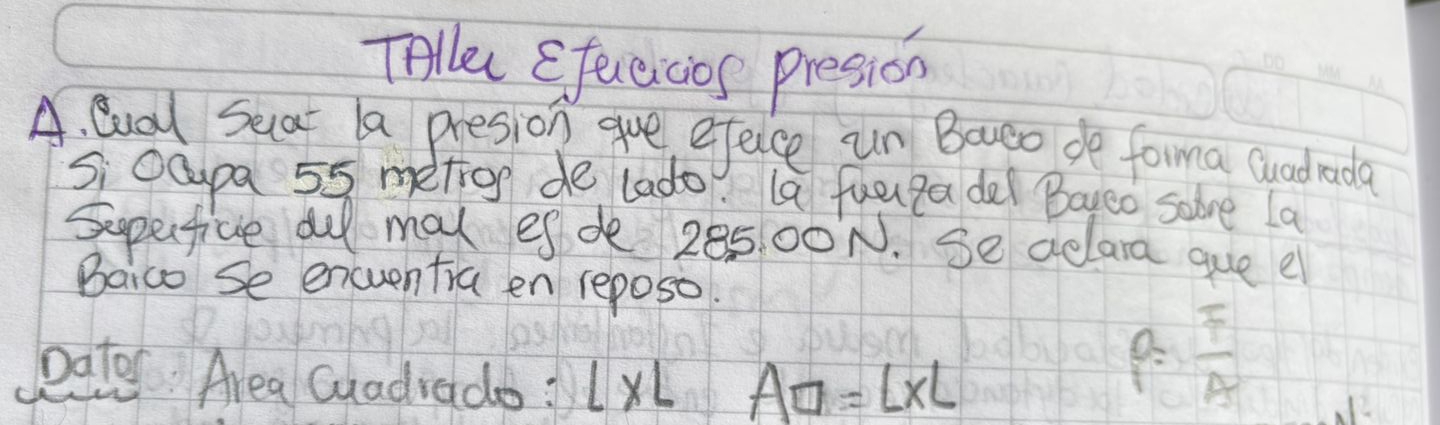 TAller Ejercicios presión
A. Cual será la presión que ejerce un Barco de forma cuadrada
Si Ocupa 55 metros de lado. la fuerza del Barco sobre la
Superficie del mar es de 285.00 N. Se aclara que el
Barco Se encuentra en reposo.
Datos: Area Cuadrado: LXL A□=LXL P=F/A